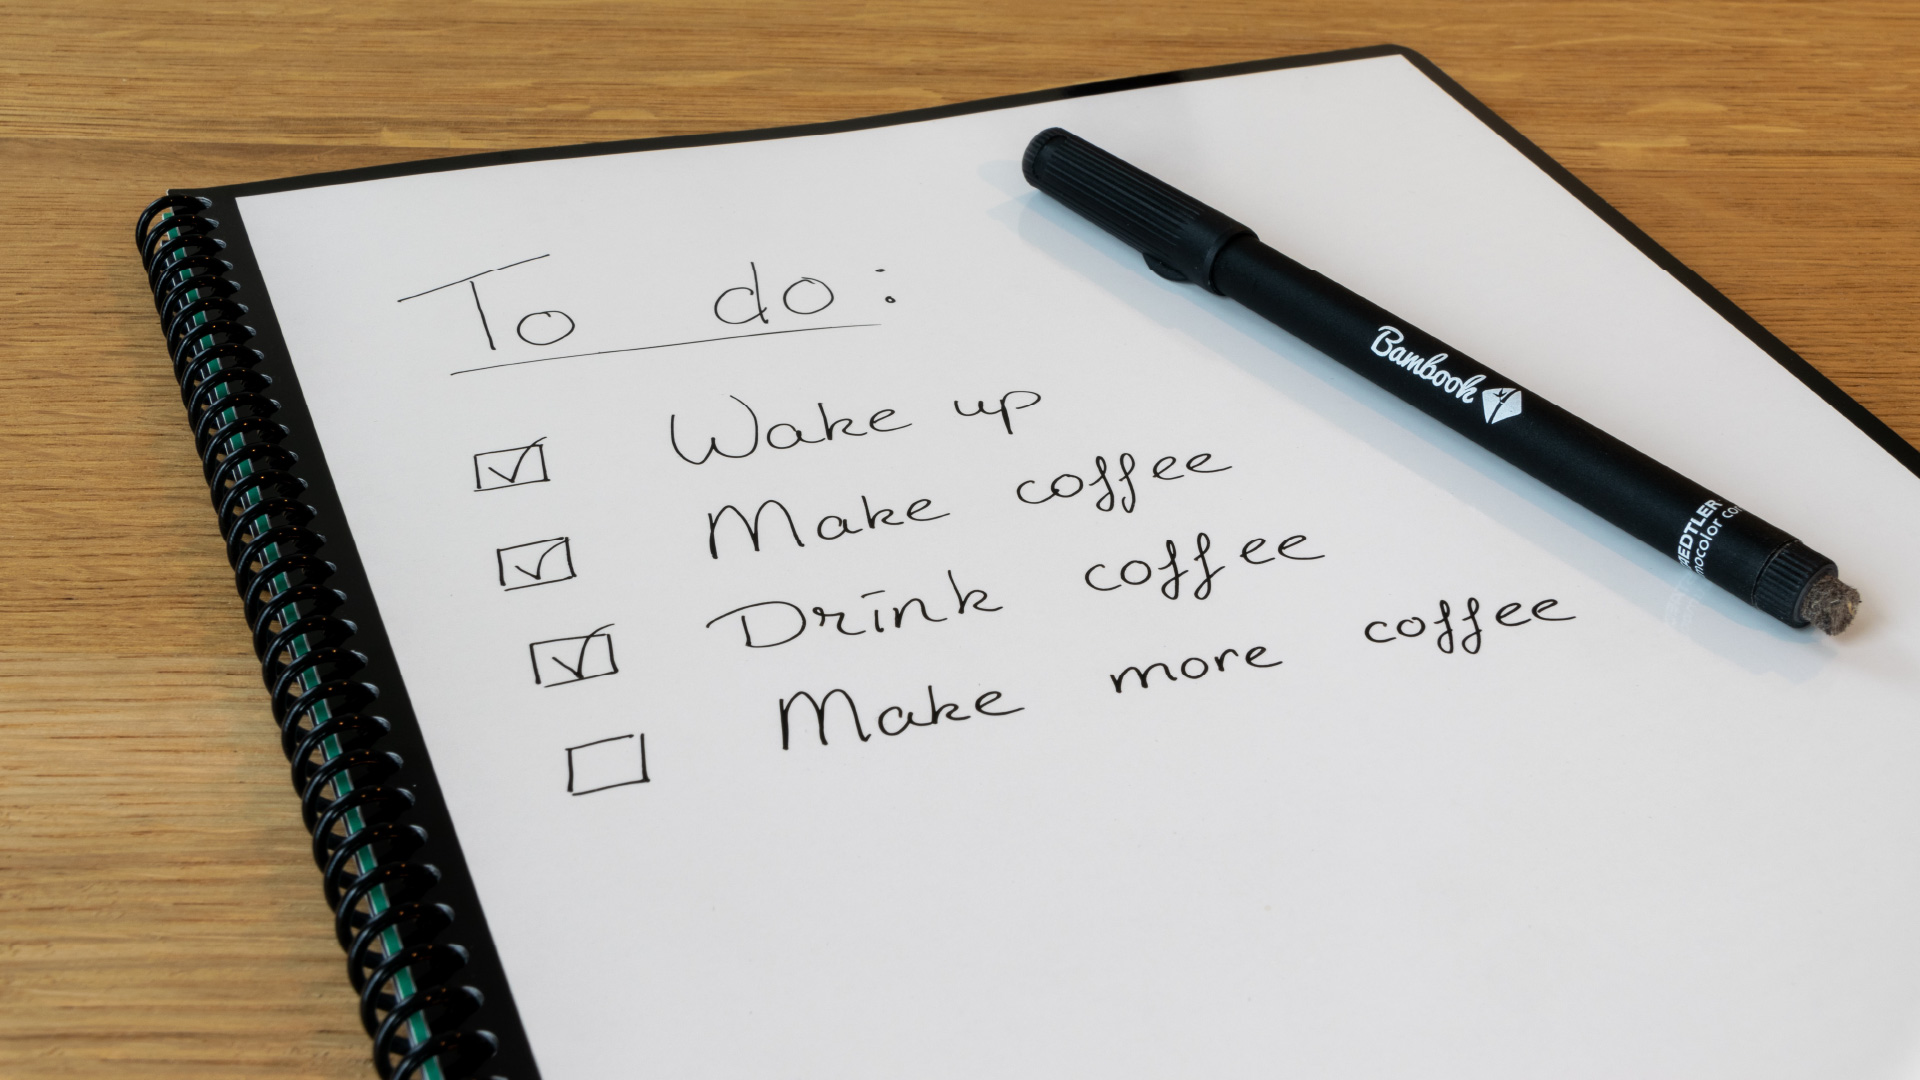 To do:
Wake up
Make coffee
Drink coffee
Make more coffee
Bambook